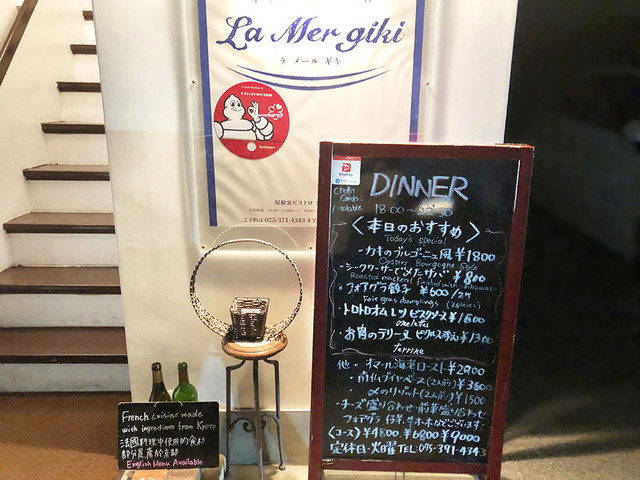 La Mer giki
ラ メール ギキ
屋根裏ビストロ
ご予約は 075-371-4343 まで
PayPay
Credit
Cards
DINNER
18:00~22:30
〈本日のおすすめ〉
Todays special
・カキのブルゴーニュ風 ¥1800
Oysters Bourgogne Style
・シークワーサーで〆たサバ ¥800
Roasted mackerel finished with
・フォアグラ餃子 ¥600/2ケ
Foie gras dumplings (2pieces)
・トロトロオムレツ ビスクソース ¥1600
omelette
・お肉のテリーヌ ピクルス添え ¥1300
terrine
他・オマール海老ロースト ¥2900
・南仏ブイヤベース(2人前) ¥3600
〆のリゾット(2人前) ¥1500
・チーズ盛り合わせ 前菜盛り合わせ
フォアグラ 仔羊 牛ホホなどございます!
〈コース〉 ¥4800 ¥6800 ¥9000
定休日・火曜日 TEL:075-371-4343
French cuisine made
with ingredients from Kyoto
法國料理中使用的食材
部分是產於京都
English Menu Available